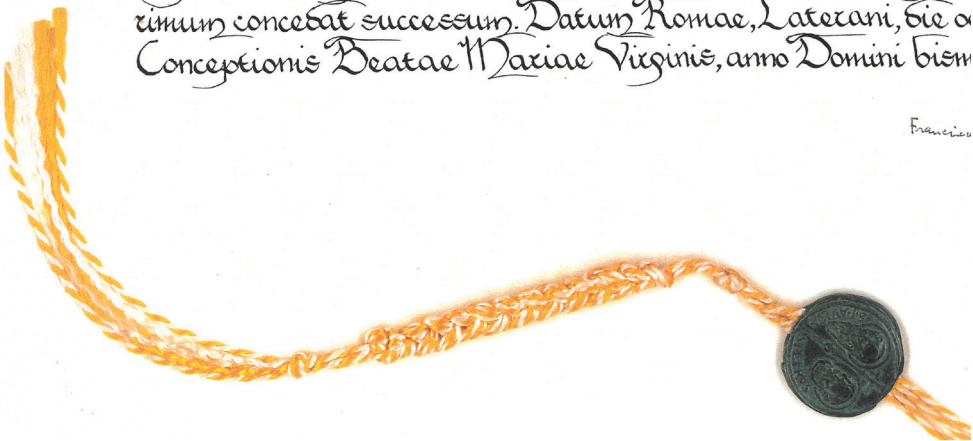 rimum concedat successum. Datum Romae, Laterani, die
Conceptionis Beatae Mariae Virginis, anno Domini bism